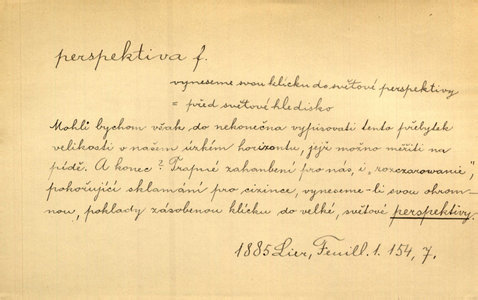 perspektiva f.
vyneseme svou klícku do světové perspektivy
= před světové hledisko
Mohli bychom však do nekonečna vypisovati tento přebytek
velikosti v našem úzkém horizontu, jejž možno měřiti na
pídě. A konec? Trapné zahanbení pro nás, i „rozczarowanie",
pokořující sklamání pro cizince, vyneseme-li svou okrom-
nou, poklady zásobenou klícku do velké, světové perspektivy.
1885 Lier, Feuill. 1. 154, 7.